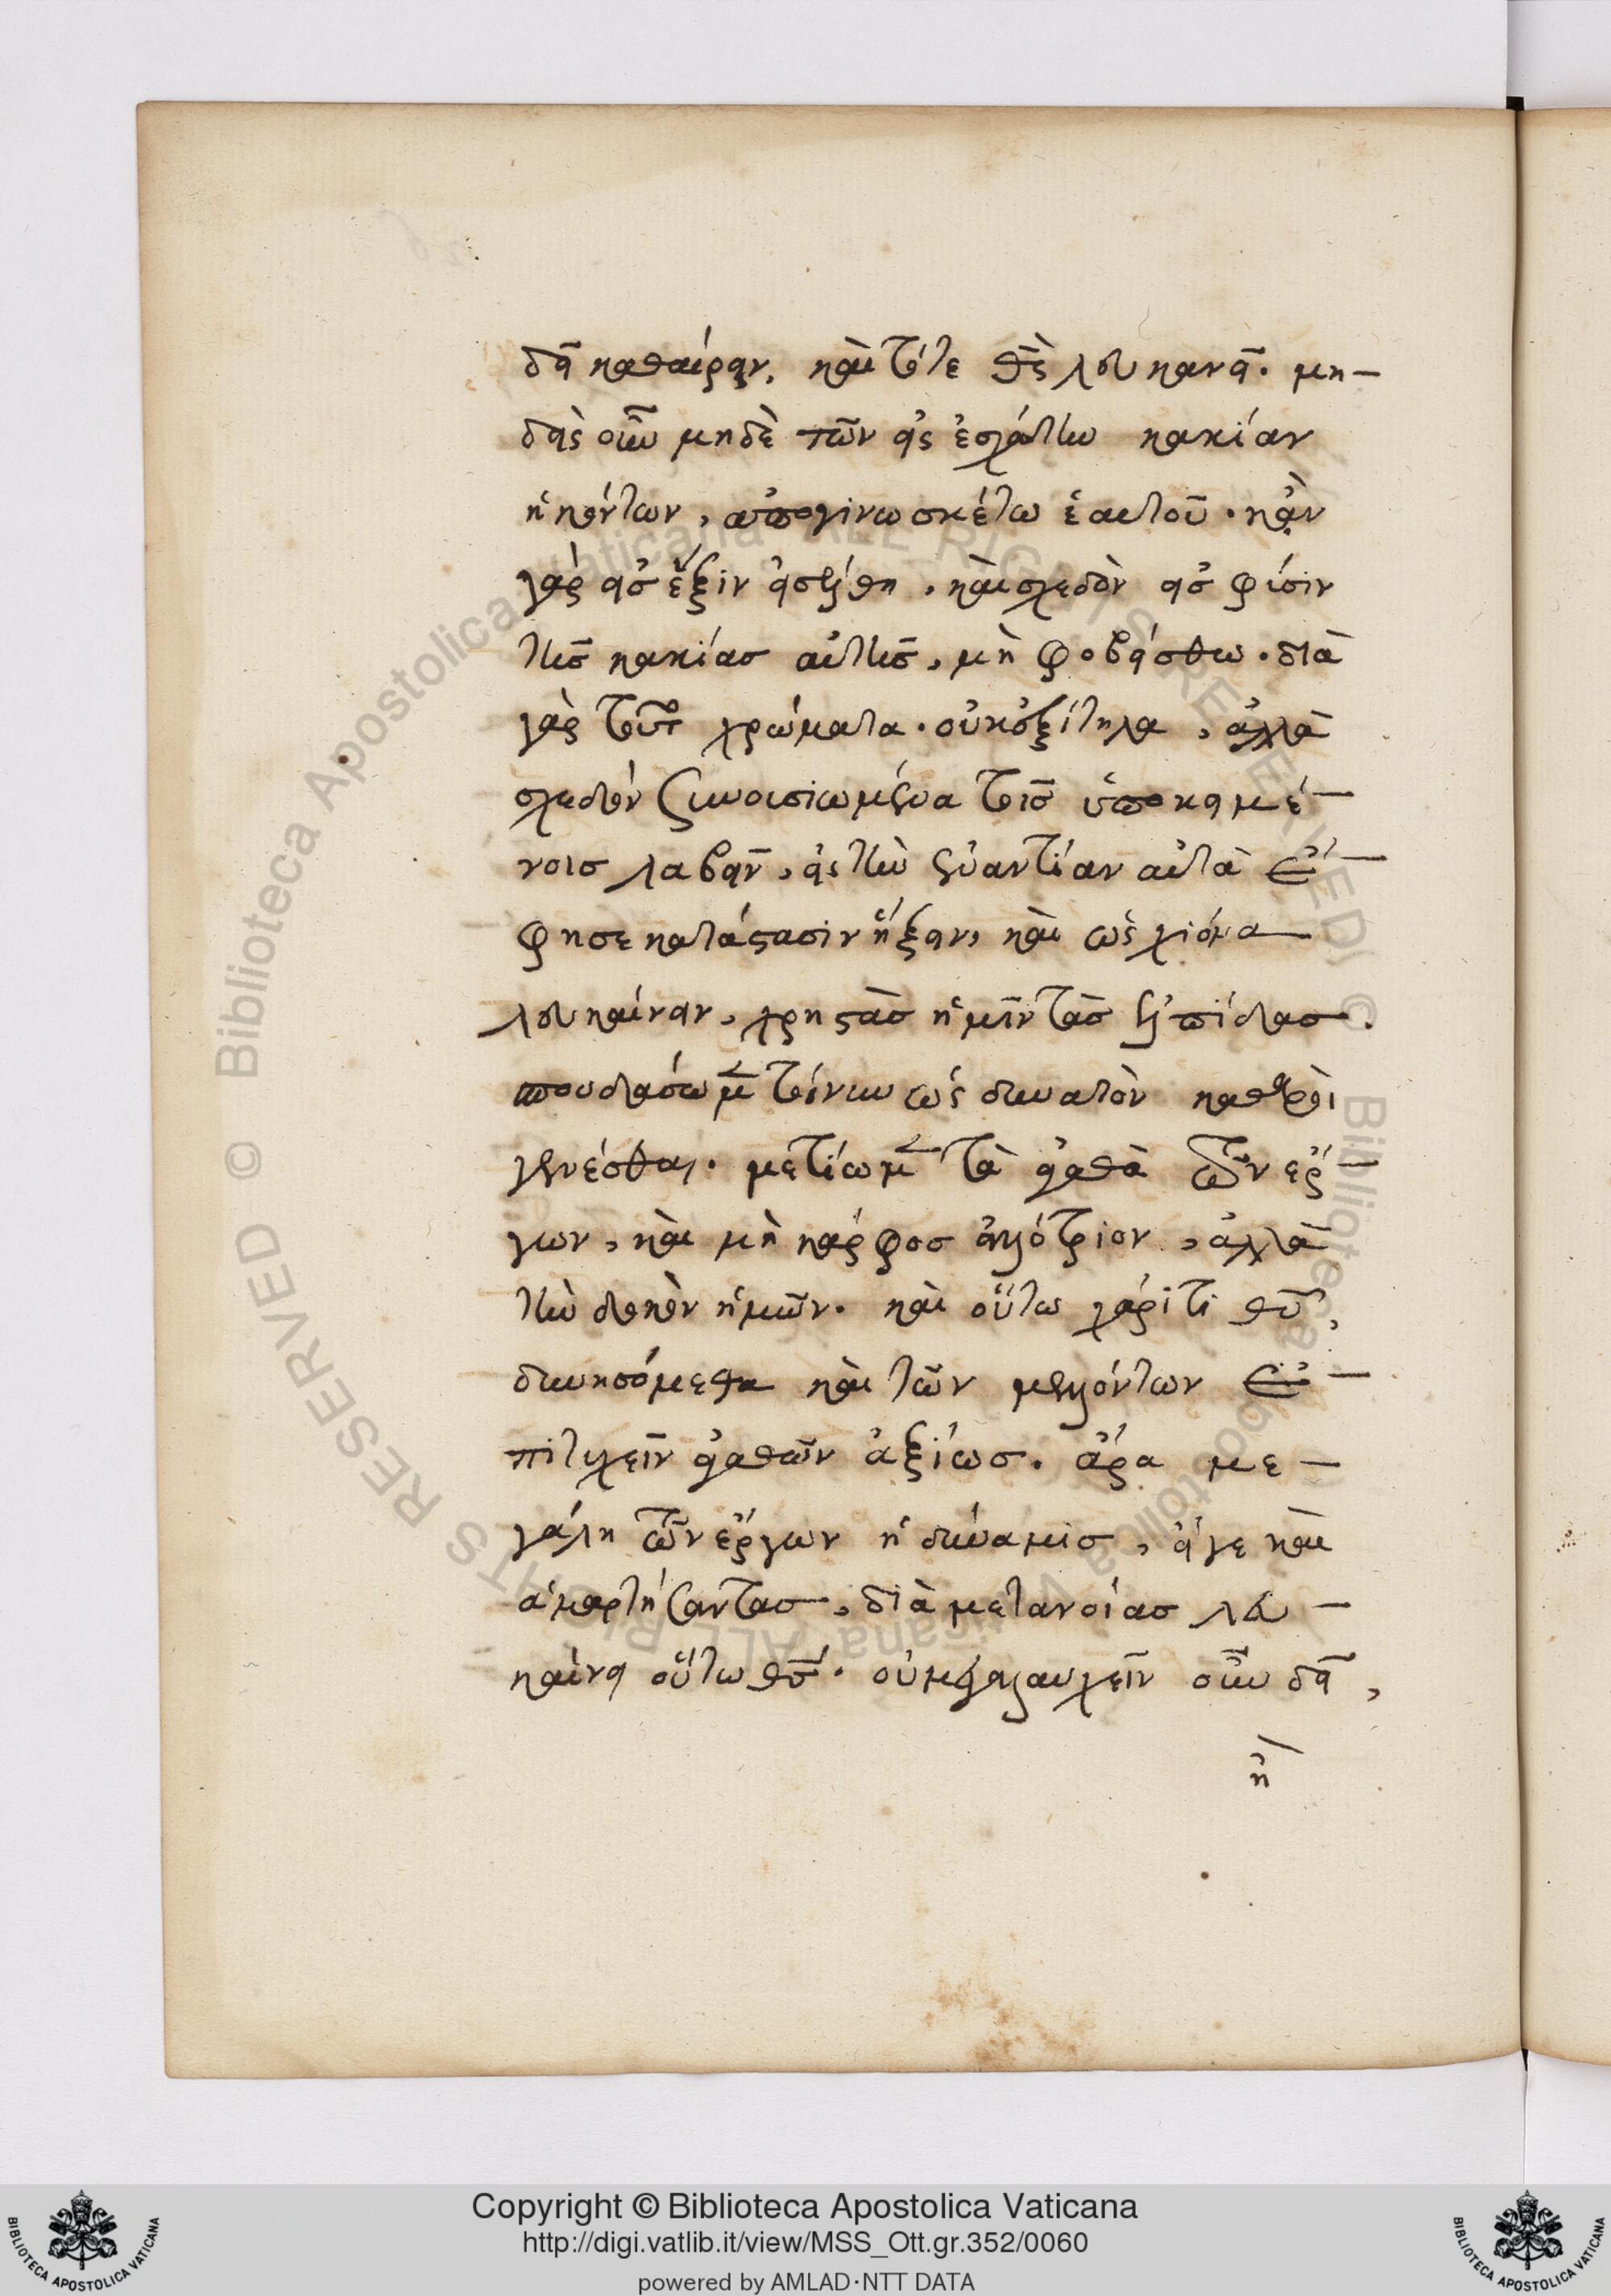 δεῖ καθαίρειν, καὶ τότε θς λευκανεῖ. μη-
δεὶς οὖν μηδὲ τῶν εἰς ἐσχάτην κακίαν
ἡκόντων, ἀπογινωσκέτω ἑαυτοῦ. κἂν
γὰρ εἰσ ἕξιν ἐστήθη, καὶ σχεδὸν εἰσ φύσιν
τῆσ κακίασ αὐτῆσ, μὴ φοβείσθω. διὰ
γὰρ τοῦτο χρώματα. οὐκ ἐξίτηλα, ἀλλὰ
σχεδὸν συνουσιωμένα τοῖσ ὑποκειμέ-
νοισ λαβεῖν, εἰς τὴν ἐναντίαν αὐτὰ ἔ-
φησε κατάστασιν ἥξειν, καὶ ὡς χιόνα
λευκαίνειν, χρηστὰσ ἡμῖν τὰσ ἐλπίδασ.
σπουδάσωμεν τοίνυν ὡς δυνατὸν καθαροὶ
γενέσθαι. μετίωμεν τὰ ἀγαθὰ τῶν ἔρ-
γων, καὶ μὴ κάρφοσ ἀλλότριον, ἀλλὰ
τὴν δοκὸν ἡμῶν. καὶ οὕτω χάριτι θῦ,
δυνησόμεθα καὶ τῶν μελλόντων ἐ-
πιτυχεῖν ἀγαθῶν ἀξίωσ. ἄρα με-
γάλη τῶν ἔργων ἡ δύναμισ, εἴγε καὶ
ἁμαρτήσαντασ, διὰ μετανοίασ λευ-
καίνει οὕτω θσ. οὐ μεγαλαυχεῖν οὖν δεῖ,
ἢ
Copyright © Biblioteca Apostolica Vaticana
http://digi.vatlib.it/view/MSS_Ott.gr.352/0060
powered by AMLAD·NTT DATA